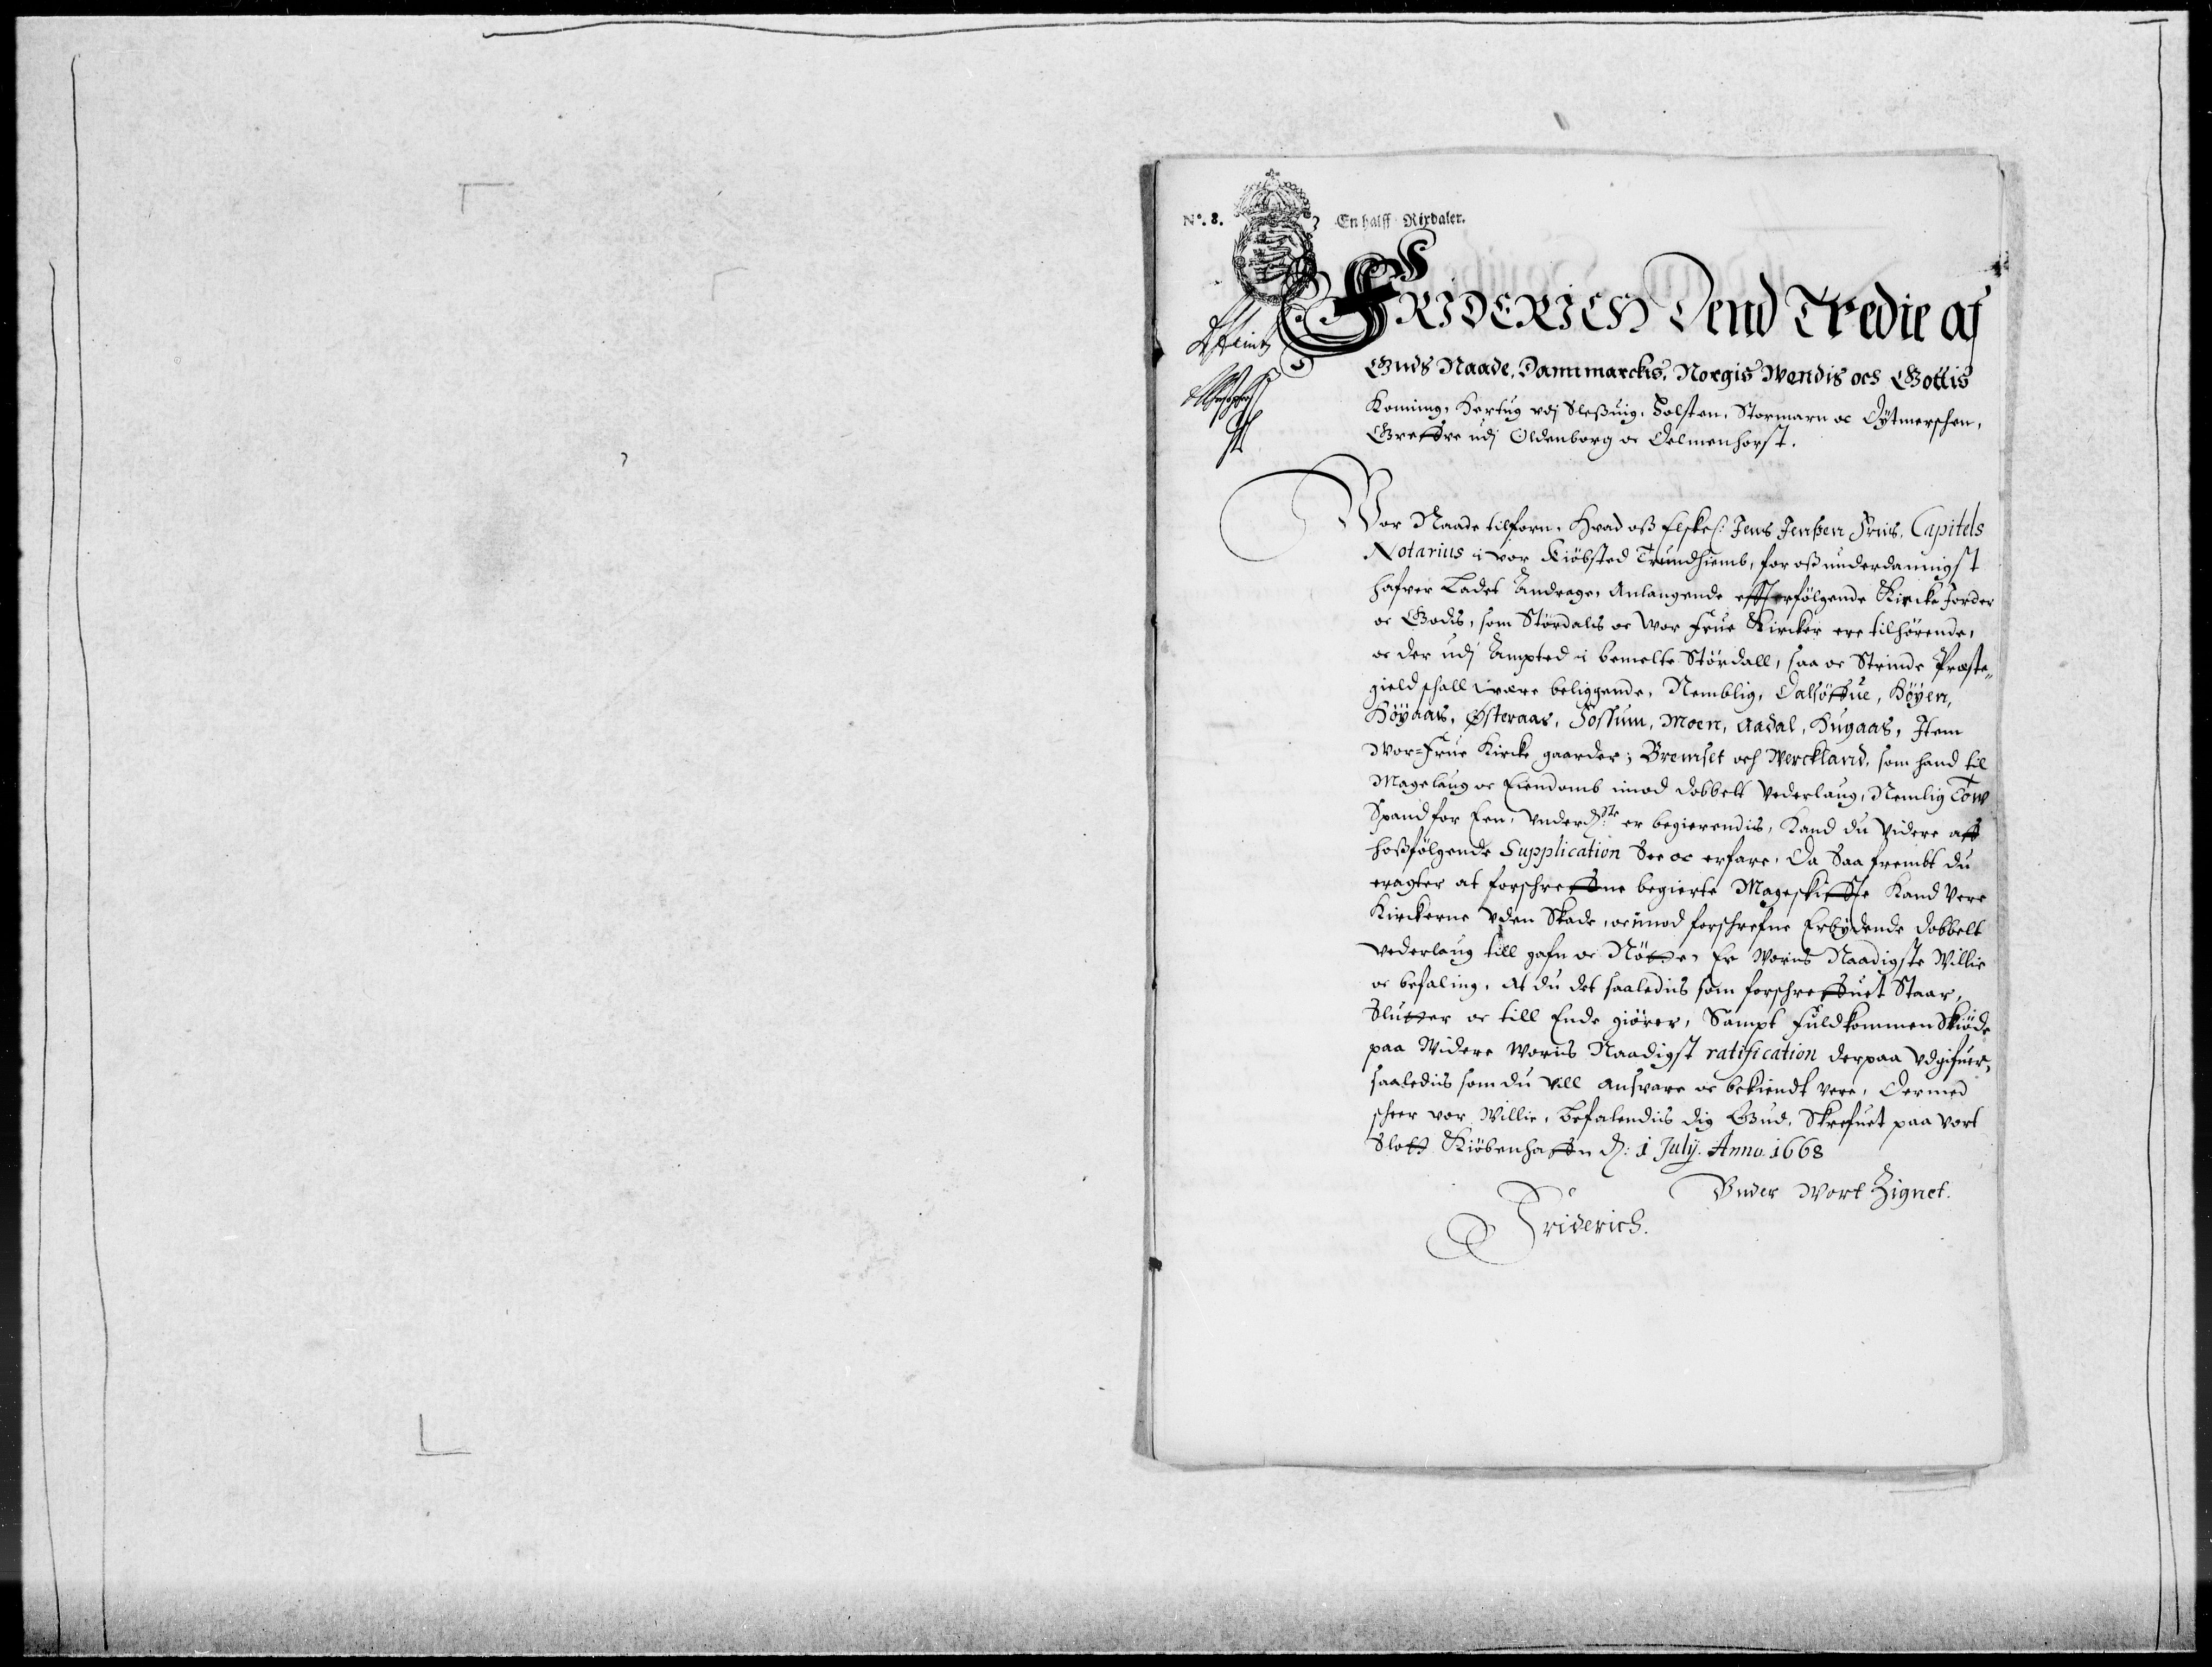 N°. 8. En halff Rixdaler.
FRIDERICH Dend Tredie af
Guds Naade, Dannmarckis, Norgis Wendis och Gottis
Konning, Hertug udj Sleßuig, Holsten, Stormarn oc Dÿtmerschen,
Greffve udj Oldenborg oc Delmenhorst.
Vor Naade tilforn. Hvad oß Elskel: Jens Jenßen Friis, Capitels
Notarius i vor Kiöbsted Trundhiemb, for oß underdannigst
hafver Ladet Andrage, Anlangende effterfölgende Kircke Jorder
oc Godis, som Stördalis oc Wor Frue Kircker ere tilhörende,
oc der udj Ampted i bemelte Stördall, saa oc Strinde Præste,,
gield schall være beliggende, Nemblig, Dalsöffue, Höyen,
Höyaas, Østeraas, Fossum, Moen, Aadal, Hugaas, Item
Wor=Frue Kircke gaarder; Bremset och Werckland, som hand til
Magelaug oc Eiendomb imod dobbelt Vederlaug, Nemlig Tow
Spand for Een, Underd:ste er begierendis, Kand du Videre aff
hoßfölgende Supplication See oc erfare, Da Saafrembt du
eragter at forschreffne begierte Mageskiffte Kand Vere
Kirckerne Uden Skade, oc imod forschrefne Erbÿdende dobbelt
Vederlaug till gafn oc Nötte, Er Woris Naadigste Villie
oc befaling, At du det saaledis som forschreffuet Staar,
Slutter oc till Ende giörer, Sampt fuldkommen Skiöde
paa Widere Woris Naadigst ratification derpaa Udgifuer,
saaledis som du vill ansvare oc bekiendt vere, Dermed
scheer vor Willie, Befalendis dig Gud, Skrefuet paa vort
Slott Kiöbenhaffn d: 1 Julÿ. Anno. 1668
Under Wort Zignet.
Friderich.